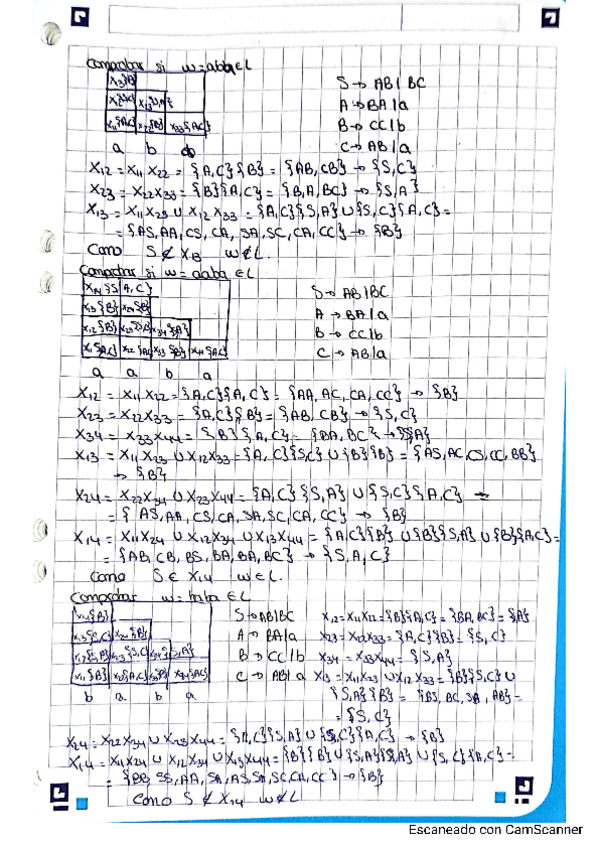 Comprobar si w=aba∈L
X13{B}
S→ AB|BC
A→BA|a
B→ CC|b
C→ AB|a
X11{A,C} X22{B} X33{A,C}
a b a
X12 = X11 X22 = {A,C}{B} = {AB, CB} → {S,C}
X23 = X22X33 = {B}{A,C} = {B,A,BC} → {S,A}
X13 = X11X23 ∪ X12X33 = {A,C}{S,A}∪{S,C}{A,C}=
= {AS,AA,CS,CA,SA,SC,CA,CC} → {B}
Como S∉X13 w∉L.
Comprobar si w=aaba ∈L
X14{S,A,C}
X13{B} X24{B}
X12{B} X23{S,C} X34{S,A}
X11{A,C} X22{A,C} X33{B} X44{A,C}
S→ AB|BC
A → BA|a
B → CC|b
C → AB|a
a a b a
X12 = X11X22 = {A,C}{A,C} = {AA, AC, CA, CC} → {B}
X23 = X22X33 = {A,C}{B} = {AB, CB} → {S,C}
X34 = X33X44 = {B}{A,C} = {BA, BC} → {S,A}
X13 = X11X23 ∪ X12X33 = {A,C}{S,C} ∪ {B}{B} = {AS,AC,CS,CC,BB}
→ {B}
X24 = X22X34 ∪ X23X44 = {A,C}{S,A} ∪ {S,C}{A,C} =
= {AS,AA,CS,CA,SA,SC,CA,CC} → {B}
X14 = X11X24 ∪ X12X34 ∪ X13X44 = {A,C}{B} ∪{B}{S,A} ∪{B}{A,C}=
= {AB, CB, BS, BA, BA, BC} → {S,A,C}
Como S∈X14 w∈L.
Comprobar w=baba ∈L
X14{B}
X13{S,C} X24{B}
X12{S,A} X23{S,C} X34{S,A}
X11{B} X22{A,C} X33{B} X44{A,C}
b a b a
S→AB|BC
A→ BA|a
B→ CC|b
C→ AB|a
X12=X11X22={B}{A,C}={BA,BC}={A}
X23=X22X33={A,C}{B}={S,C}
X34=X33X44={S,A}
X13=X11X23 ∪X12X33={B}{S,C}∪
{S,A}{B} = {BS,BC,SB,AB}=
={S,C}
X24=X22X34 ∪ X23X44 = {A,C}{S,A} ∪{S,C}{A,C} → {B}
X14=X11X24 ∪ X12X34 ∪X13X44={B}{B}∪{S,A}{S,A} ∪{S,C}{A,C}=
= {BB, SS, AA, SA, AS, SA, SC, CA, CC} → {B}
Como S∉X14 w∉L
Escaneado con CamScanner